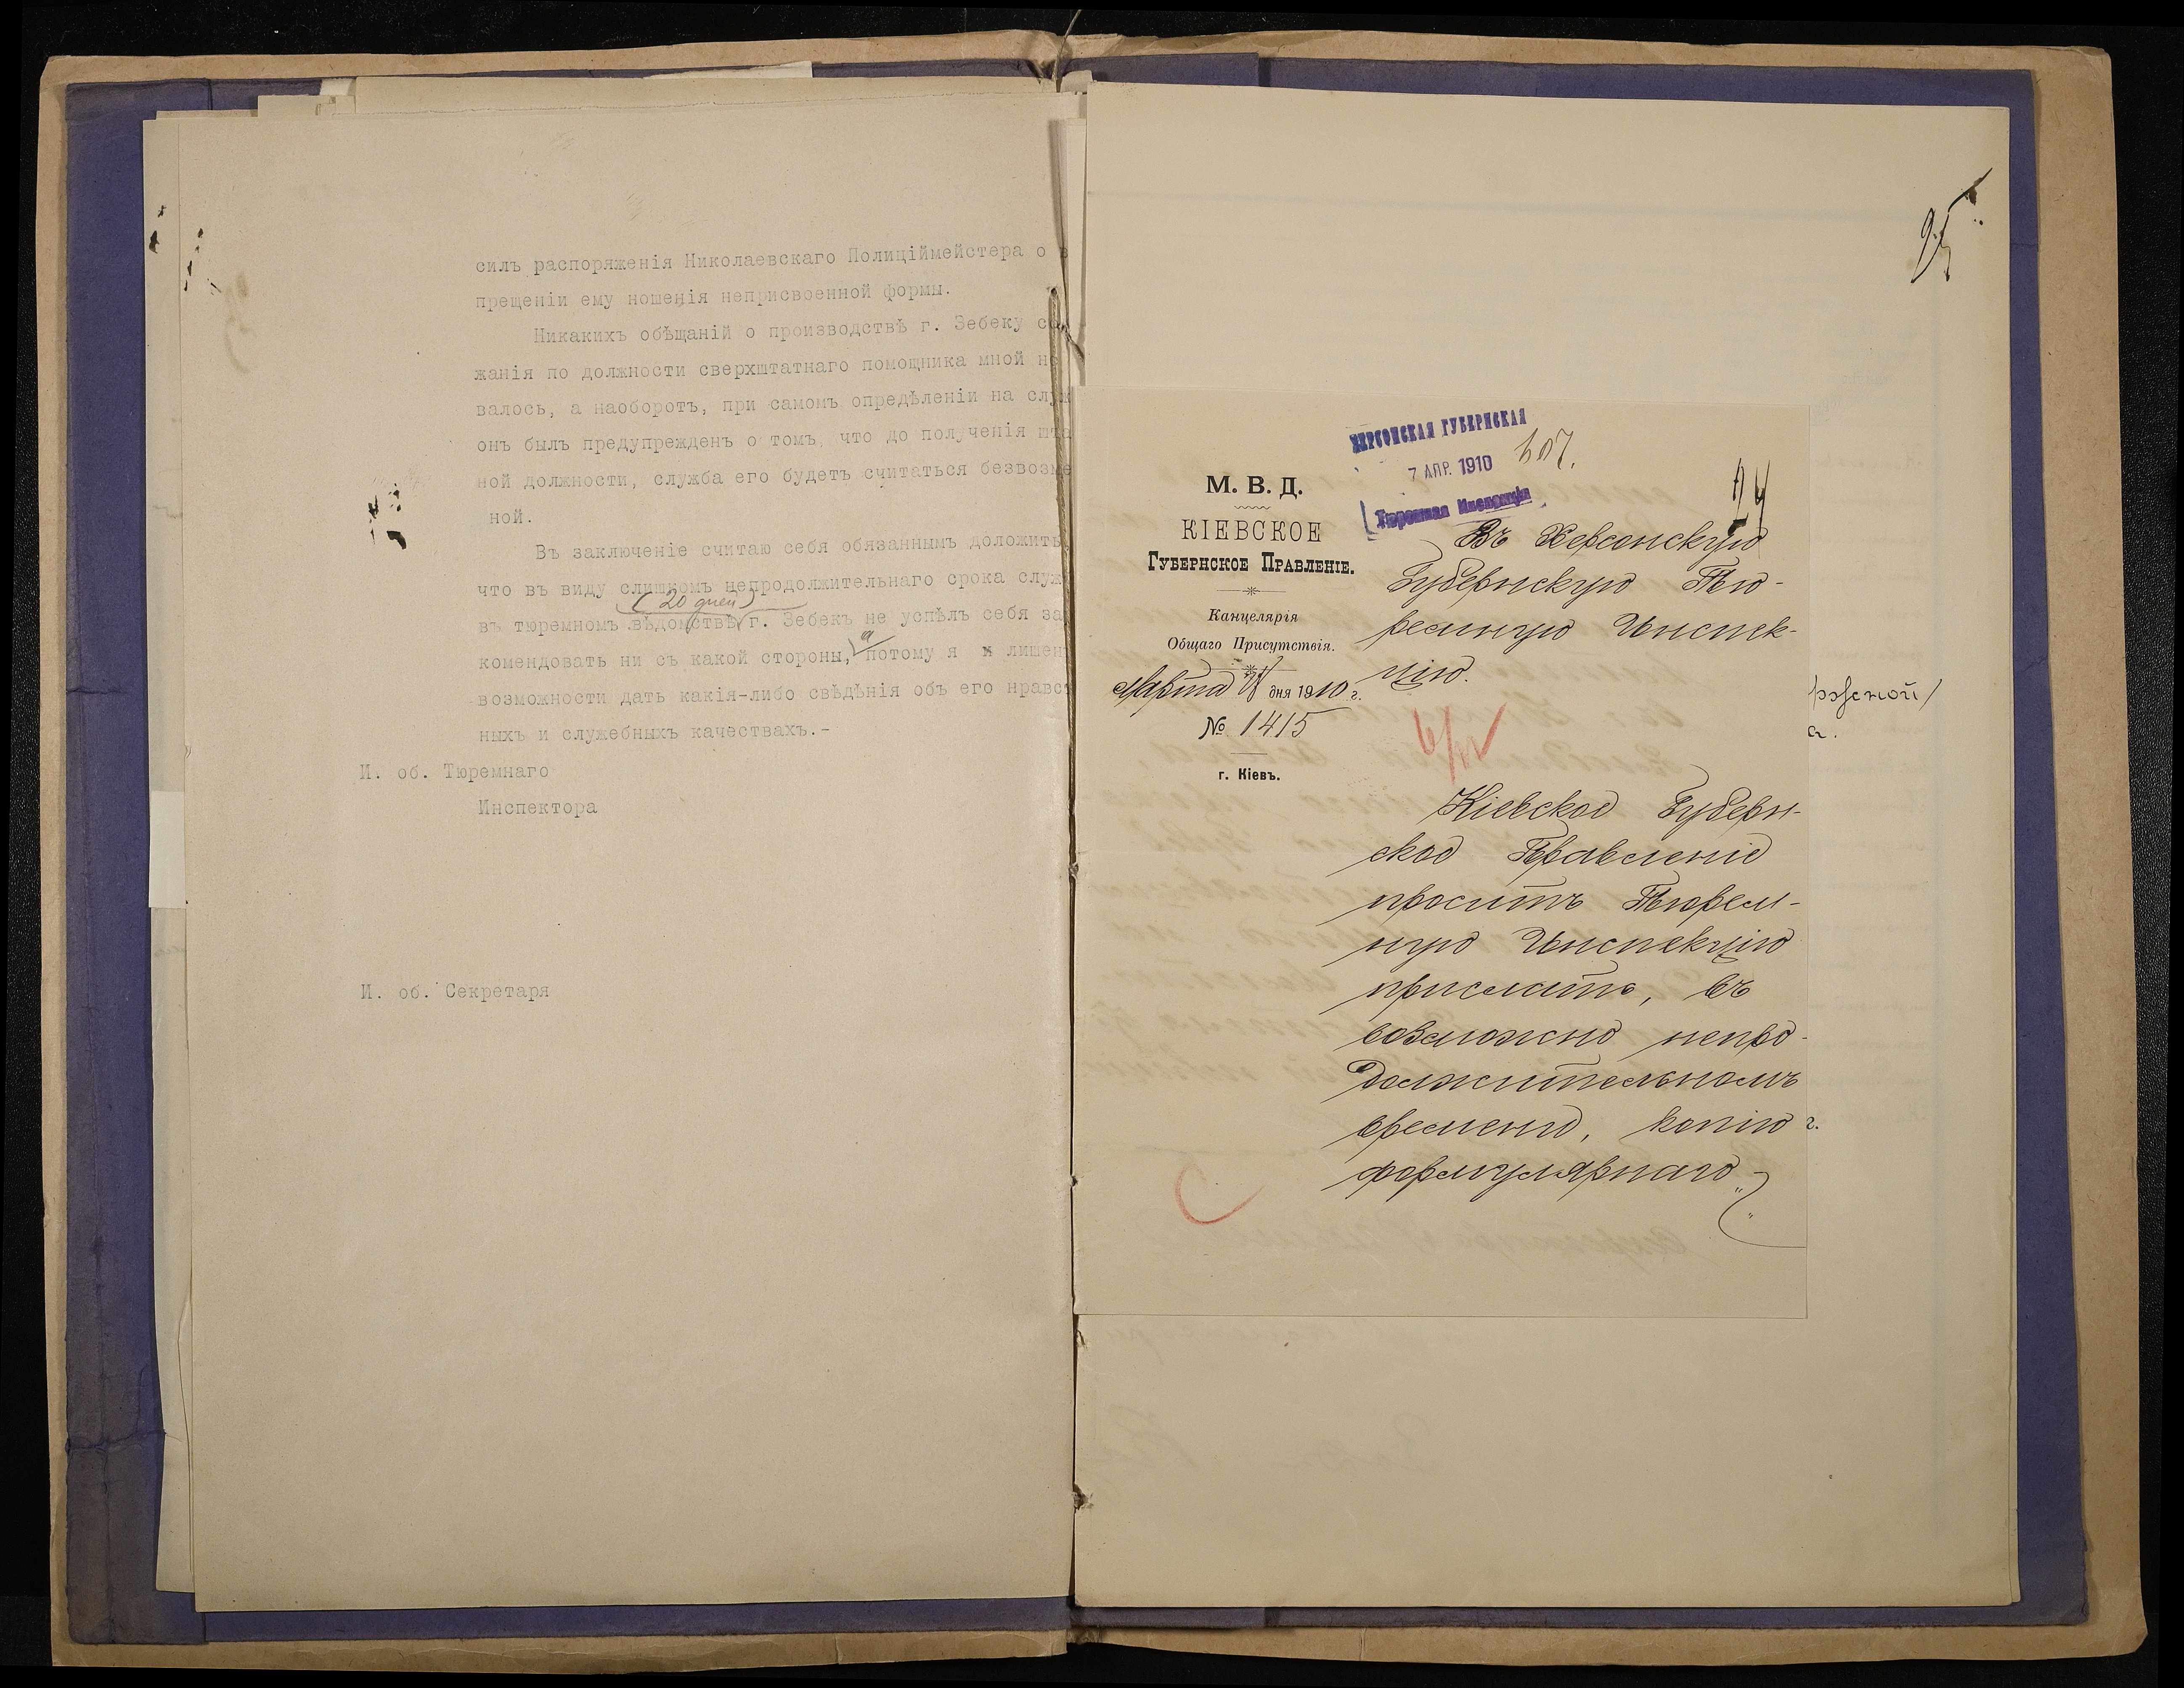 силъ распоряженія Николаевскаго Полиціймейстера о в
прещеніи ему ношенія неприсвоенной формы.
Никакихъ обѣщаній о производствѣ г. Зебеку со
жанія по должности сверхштатнаго помощника мной не
валось, а наоборотъ, при самомъ опредѣленіи на служ
онъ былъ предупрежденъ о томъ, что до полученія шта
ной должности, служба его будетъ считаться безвозме
ной.
Въ заключеніе считаю себя обязаннымъ доложить,
что въ виду слишкомъ непродолжительнаго срока служ
(20 дней)
въ тюремномъ вѣдомствѣ г. Зебекъ не успѣлъ себя за
а
комендовать ни съ какой стороны, потому я лишен
возможности дать какія-либо свѣдѣнія объ его нравст
ныхъ и служебныхъ качествахъ.-
И. об. Тюремнаго
Инспектора
И. об. Секретаря
95
ХЕРСОНСКАЯ ГУБЕРНСКАЯ
7 АПР. 1910
Тюремная Инспекція
24
М. В. Д.
КІЕВСКОЕ
ГУБЕРНСКОЕ ПРАВЛЕНІЕ.
Канцелярія
Общаго Присутствія.
Марта дня 1910 г.
№ 1415
г. Кіевъ.
Въ Херсонскую
Губернскую Тю-
ремную Инспек-
цію.
Кіевское Губерн-
ское Правленіе
проситъ Тюрем-
ную Инспекцію
прислать, въ
возможно непро-
должительномъ
времени, копію
формулярнаго
г.